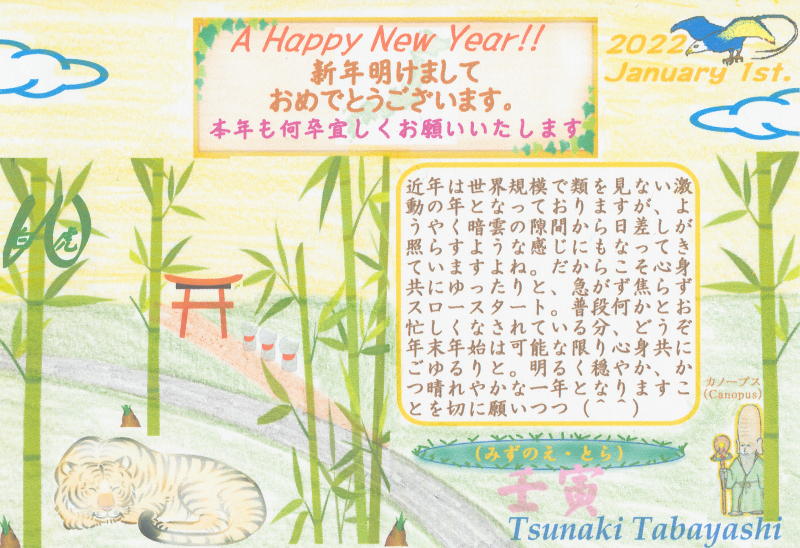 A Happy New Year!!
新年明けまして
おめでとうございます。
本年も何卒宜しくお願いいたします
2022
January 1st.
白虎
近年は世界規模で類を見ない激
動の年となっておりますが、よ
うやく暗雲の隙間から日差しが
照らすような感じにもなってき
ていますよね。だからこそ心身
共にゆったりと、急がず焦らず
スロースタート。普段何かとお
忙しくなされている分、どうぞ
年末年始は可能な限り心身共に
ごゆるりと。明るく穏やか、か
つ晴れやかな一年となりますこ
とを切に願いつつ（＾＾）
カノープス
(Canopus)
（みずのえ・とら）
壬寅
Tsunaki Tabayashi